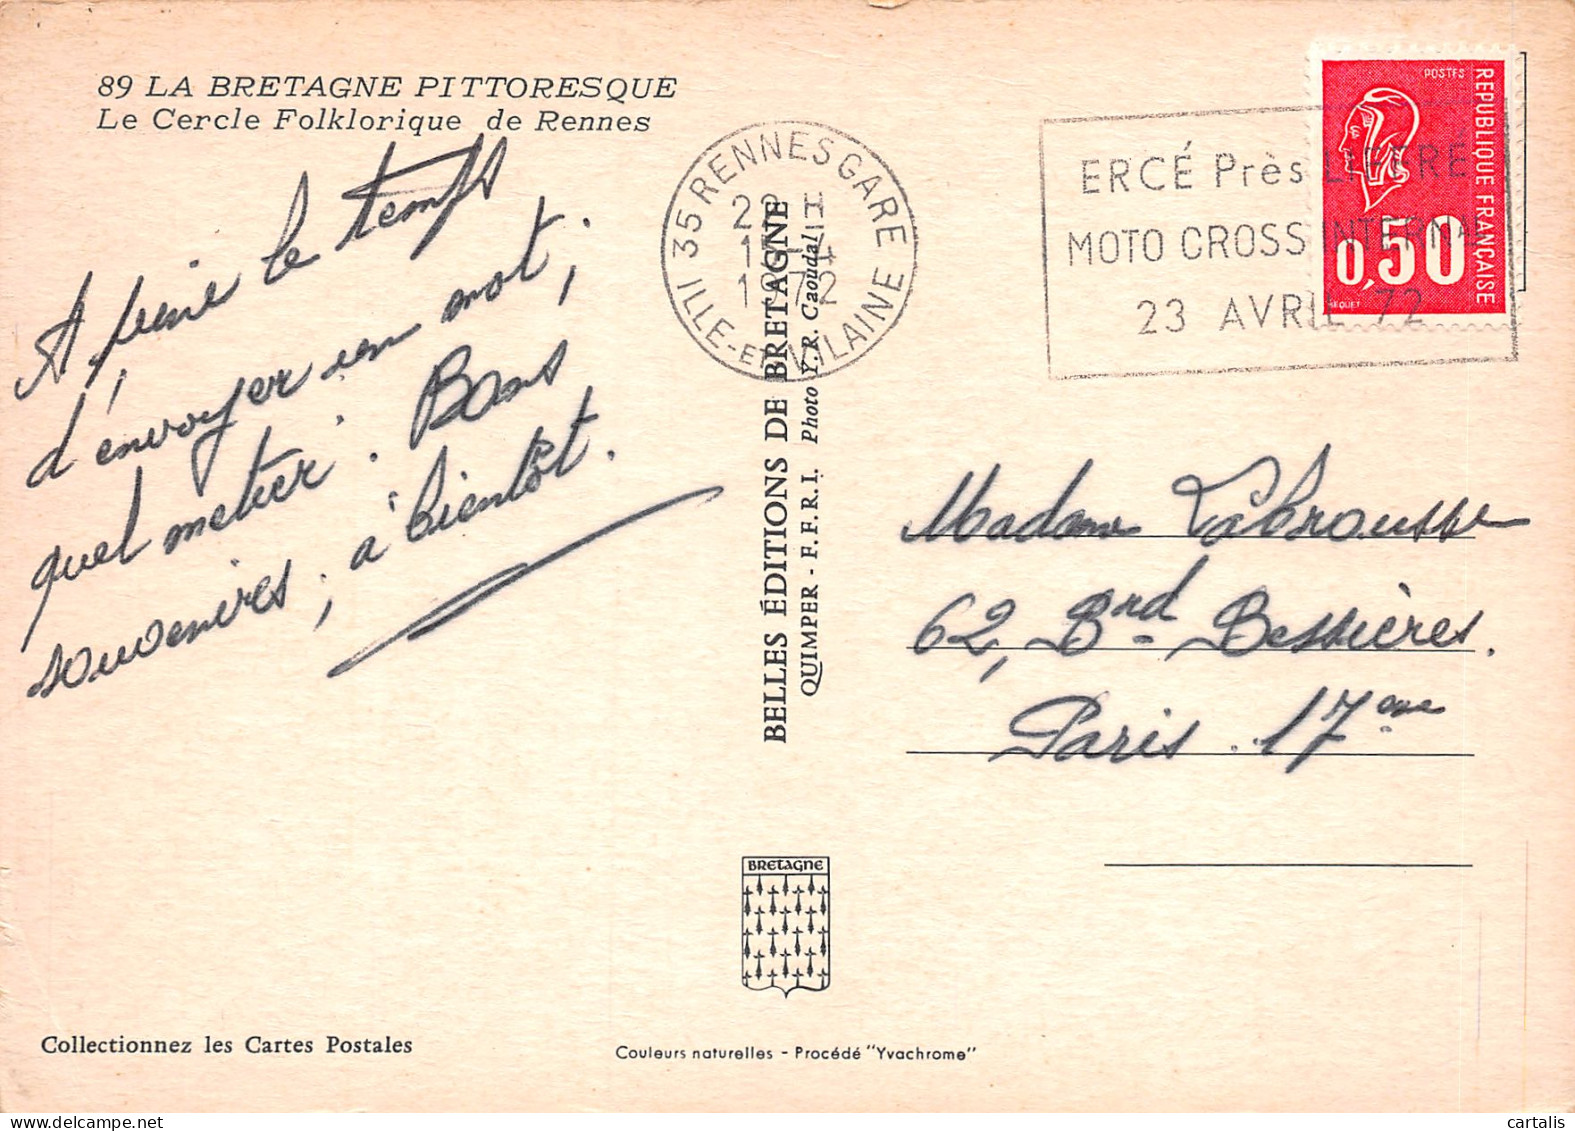 89 LA BRETAGNE PITTORESQUE
Le Cercle Folklorique de Rennes
A peine le temps
d'envoyer un mot ;
quel métier . Bons
souvenirs ; à bientôt .
35 RENNES GARE
ILLE-ET-VILAINE
1972
ERCÉ Près LIFFRÉ
MOTO CROSS INTERNAL
23 AVRIL 72
POSTES
REPUBLIQUE FRANÇAISE
0,50
BEQUET
BELLES ÉDITIONS DE BRETAGNE
QUIMPER - F.F.R.I. Photo Y.R. Caoudal
Madame Labrousse
62, Brd Bessières.
Paris . 17eme
BRETAGNE
Collectionnez les Cartes Postales
Couleurs naturelles - Procédé "Yvachrome"
cartalis